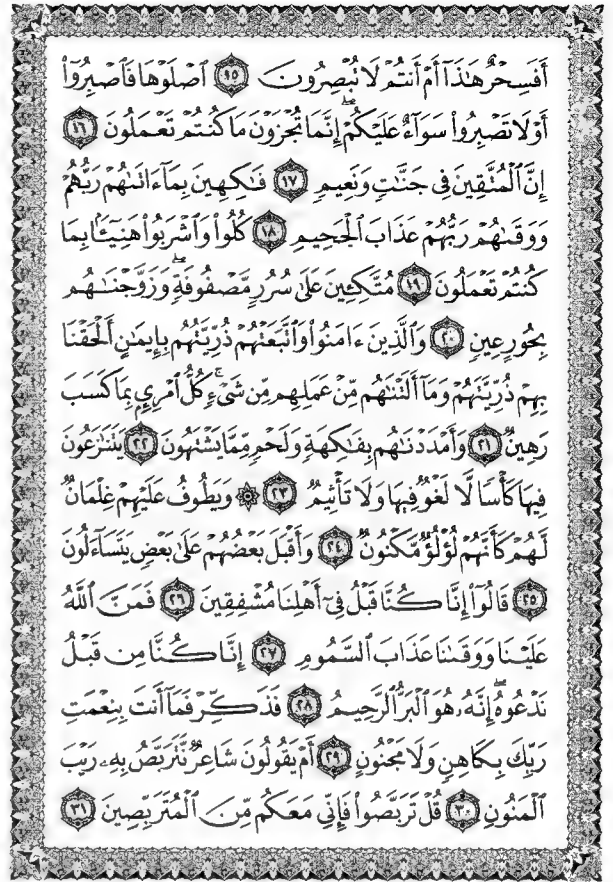 أَفَسِحْرٌ هَٰذَآ أَمْ أَنتُمْ لَا تُبْصِرُونَ ﴿١٥﴾ ٱصْلَوْهَا فَٱصْبِرُوٓا۟
أَوْ لَا تَصْبِرُوا۟ سَوَآءٌ عَلَيْكُمْ ۖ إِنَّمَا تُجْزَوْنَ مَا كُنتُمْ تَعْمَلُونَ ﴿١٦﴾
إِنَّ ٱلْمُتَّقِينَ فِى جَنَّٰتٍ وَنَعِيمٍ ﴿١٧﴾ فَٰكِهِينَ بِمَآ ءَاتَىٰهُمْ رَبُّهُمْ
وَوَقَىٰهُمْ رَبُّهُمْ عَذَابَ ٱلْجَحِيمِ ﴿١٨﴾ كُلُوا۟ وَٱشْرَبُوا۟ هَنِيٓـًٔۢا بِمَا
كُنتُمْ تَعْمَلُونَ ﴿١٩﴾ مُتَّكِـِٔينَ عَلَىٰ سُرُرٍ مَّصْفُوفَةٍ ۖ وَزَوَّجْنَٰهُم
بِحُورٍ عِينٍ ﴿٢٠﴾ وَٱلَّذِينَ ءَامَنُوا۟ وَٱتَّبَعَتْهُمْ ذُرِّيَّتُهُم بِإِيمَٰنٍ أَلْحَقْنَا
بِهِمْ ذُرِّيَّتَهُمْ وَمَآ أَلَتْنَٰهُم مِّنْ عَمَلِهِم مِّن شَىْءٍ ۚ كُلُّ ٱمْرِئٍۭ بِمَا كَسَبَ
رَهِينٌ ﴿٢١﴾ وَأَمْدَدْنَٰهُم بِفَٰكِهَةٍ وَلَحْمٍ مِّمَّا يَشْتَهُونَ ﴿٢٢﴾ يَتَنَٰزَعُونَ
فِيهَا كَأْسًا لَّا لَغْوٌ فِيهَا وَلَا تَأْثِيمٌ ﴿٢٣﴾ ۞ وَيَطُوفُ عَلَيْهِمْ غِلْمَانٌ
لَّهُمْ كَأَنَّهُمْ لُؤْلُؤٌ مَّكْنُونٌ ﴿٢٤﴾ وَأَقْبَلَ بَعْضُهُمْ عَلَىٰ بَعْضٍ يَتَسَآءَلُونَ
﴿٢٥﴾ قَالُوٓا۟ إِنَّا كُنَّا قَبْلُ فِىٓ أَهْلِنَا مُشْفِقِينَ ﴿٢٦﴾ فَمَنَّ ٱللَّهُ
عَلَيْنَا وَوَقَىٰنَا عَذَابَ ٱلسَّمُومِ ﴿٢٧﴾ إِنَّا كُنَّا مِن قَبْلُ
نَدْعُوهُ ۖ إِنَّهُۥ هُوَ ٱلْبَرُّ ٱلرَّحِيمُ ﴿٢٨﴾ فَذَكِّرْ فَمَآ أَنتَ بِنِعْمَتِ
رَبِّكَ بِكَاهِنٍ وَلَا مَجْنُونٍ ﴿٢٩﴾ أَمْ يَقُولُونَ شَاعِرٌ نَّتَرَبَّصُ بِهِۦ رَيْبَ
ٱلْمَنُونِ ﴿٣٠﴾ قُلْ تَرَبَّصُوا۟ فَإِنِّى مَعَكُم مِّنَ ٱلْمُتَرَبِّصِينَ ﴿٣١﴾